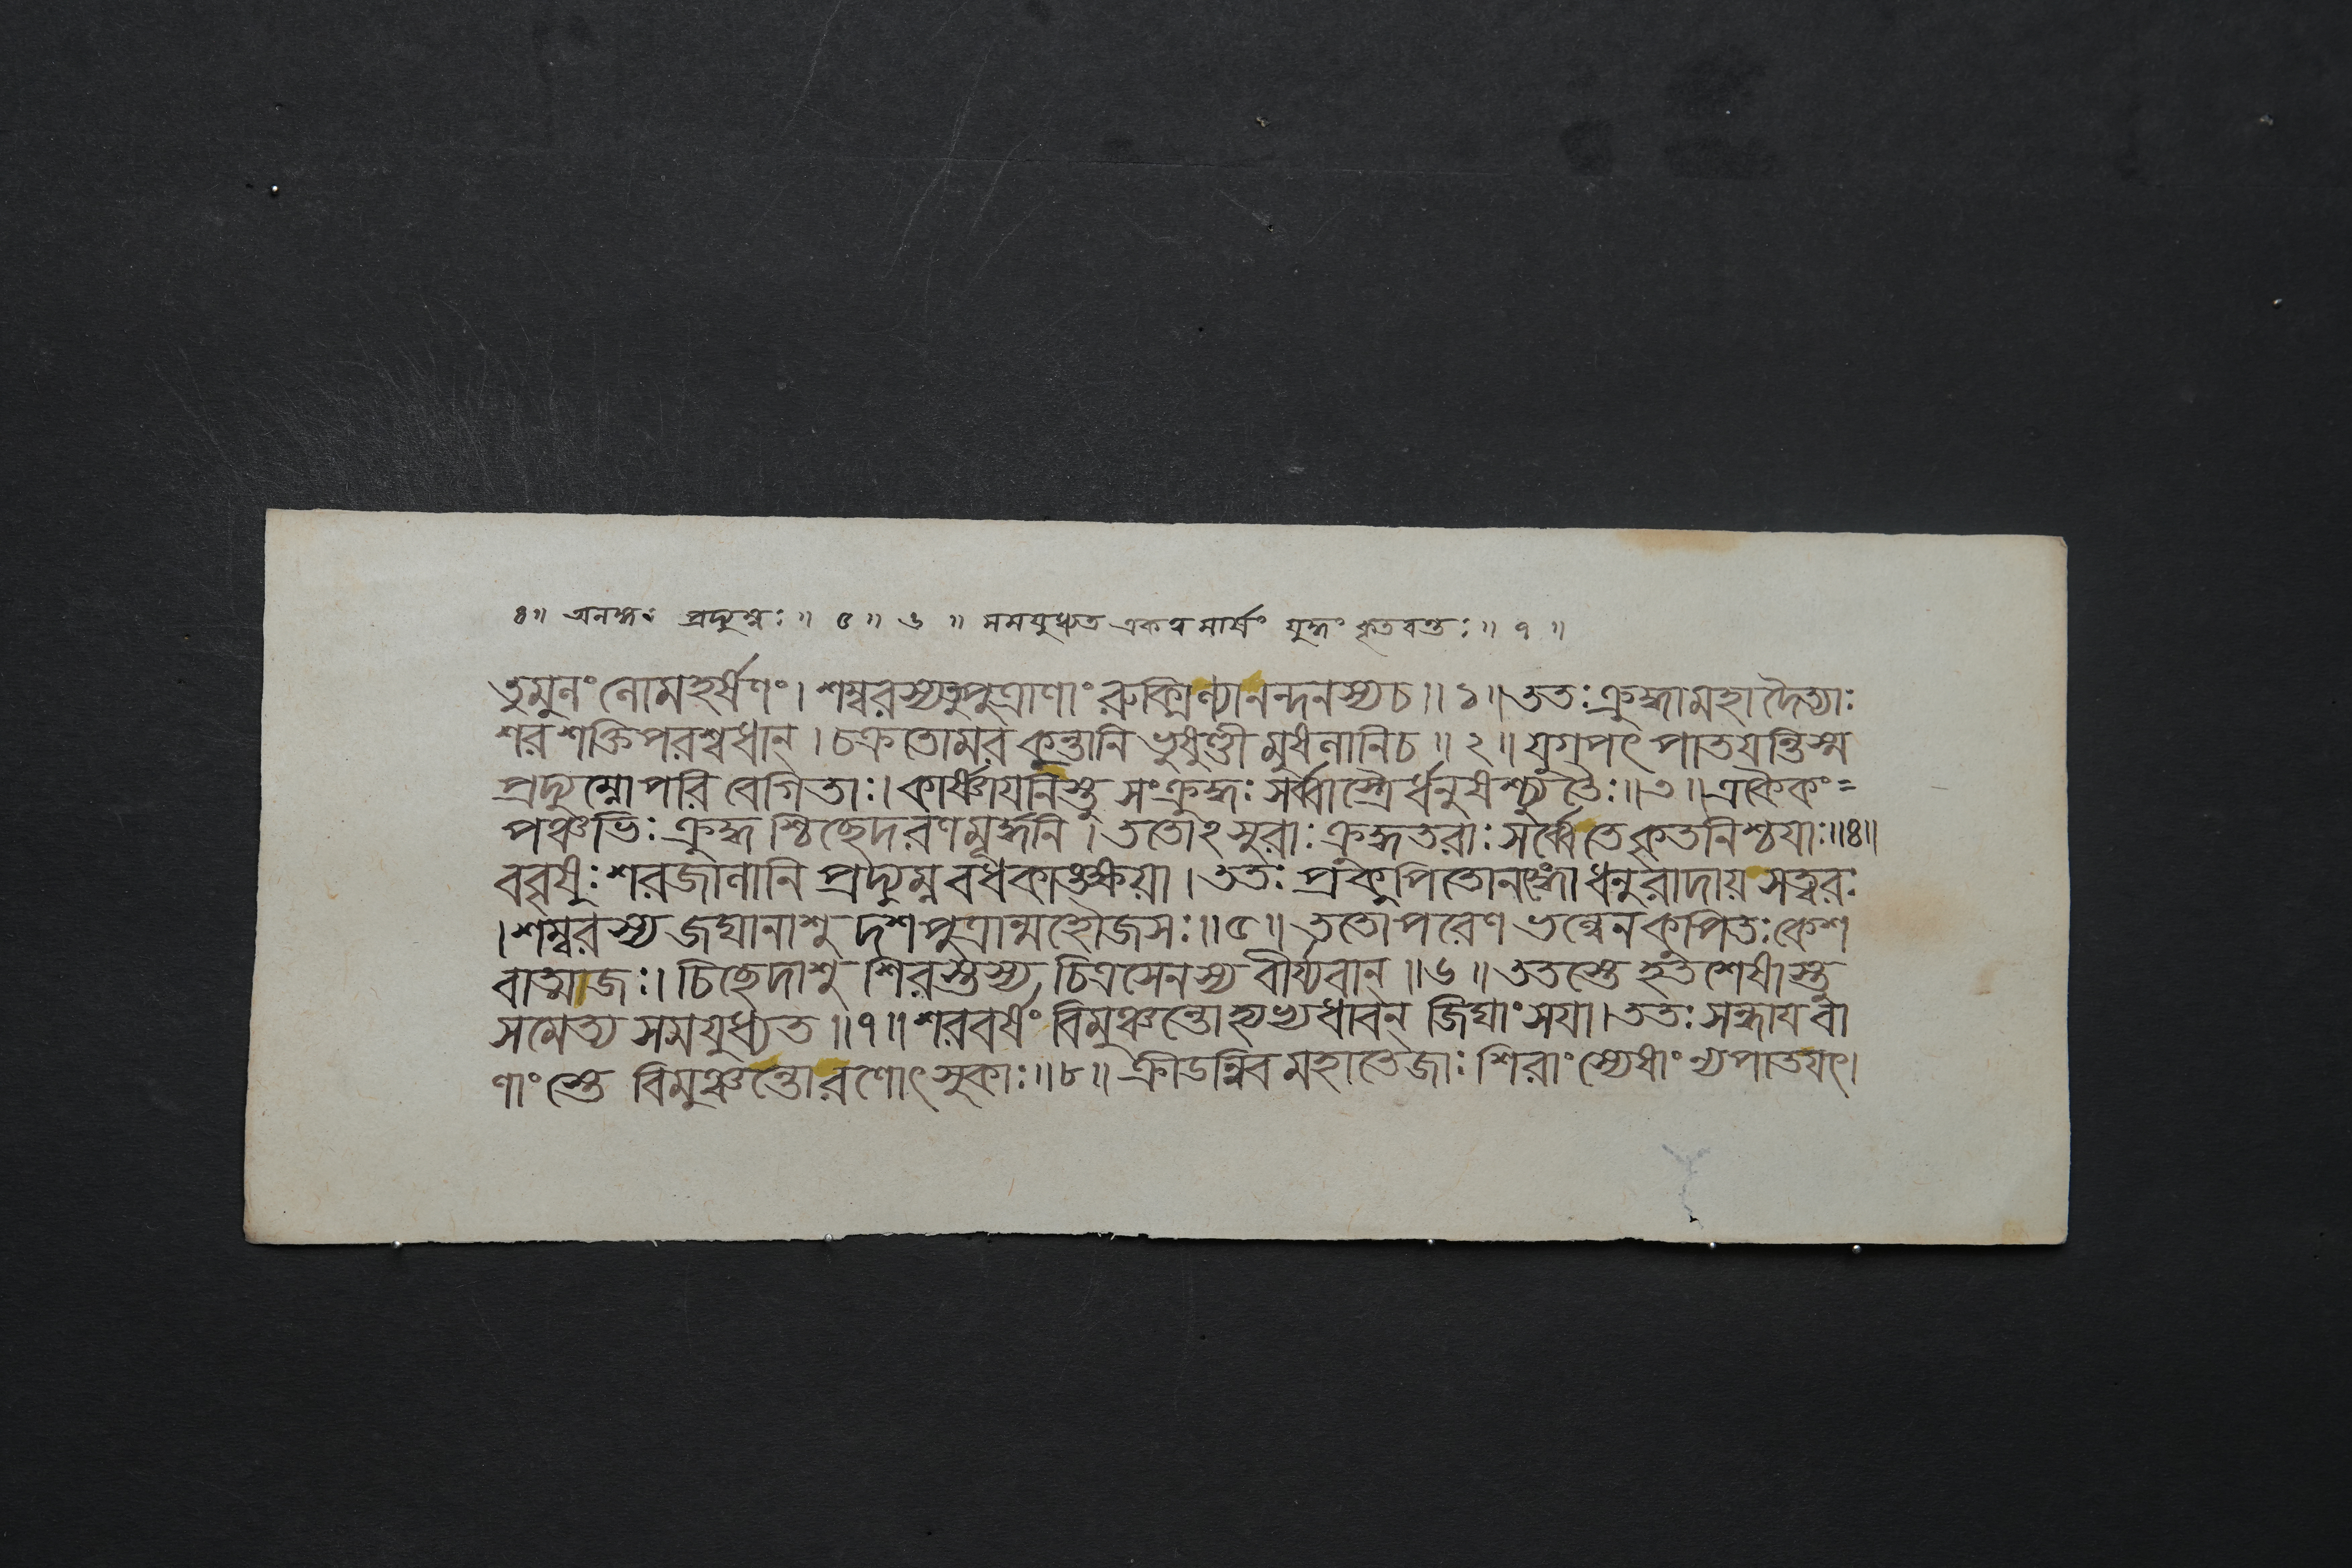 ৪॥ অনঙ্গঃ প্রদ্যুম্নঃ॥ ৫॥ ৬ ॥ সমযুধ্যত একত্র মার্ষং যুদ্ধং কৃতবন্তঃ॥ ৭ ॥
তুমুলং লোমহর্ষণং। শম্বরস্য তু পুত্রাণাং রুক্মিণ্যানন্দনস্য চ॥ ১॥ ততঃ ক্রুদ্ধা মহাদৈত্যাঃ
শরশক্তিপরশ্বধান্। চক্রতোমরকুন্তানি ভুষুণ্ডী মুষলানি চ॥ ২॥ যুগপৎ পাতয়ন্তি স্ম
প্রদ্যুম্নোপরি বেগিতাঃ। কার্ষ্ণায়নিস্তু সংক্রুদ্ধঃ সর্ব্বাস্ত্রৈর্ধনুষশ্চ্যুতৈঃ॥ ৩॥ একৈকং=
পঞ্চভিঃ ক্রুদ্ধশ্চিছেদ রণমূর্দ্ধনি। ততোঽসুরাঃ ক্রুদ্ধতরাঃ সর্ব্বে তে কৃতনিশ্চয়াঃ॥৪॥
ববৃষুঃ শরজালানি প্রদ্যুম্নবধকাঙ্ক্ষয়া। ততঃ প্রকুপিতোনঙ্গো ধনুরাদায় সত্বরঃ
। শম্বরস্য জঘানাশু দশ পুত্রান্মহৌজসঃ॥৫॥ ততোপরেণ ভল্লেন কুপিতঃ কেশ
বাত্মজঃ। চিছেদাশু শিরস্তস্য চিত্রসেনস্য বীর্য্যবান্॥৬॥ ততস্তে হতশেষাস্তু
সমেত্য সমযুধ্যত॥৭॥ শরবর্ষং বিমুঞ্চন্তোহ্যভ্যধাবন্ জিঘাংসয়া। ততঃ সন্ধায় বা
ণাংস্তে বিমুঞ্চন্তো রণোৎসুকাঃ॥৮॥ ক্রীডন্নিব মহাতেজাঃ শিরাংস্যেষাং ন্যপাতয়ৎ।